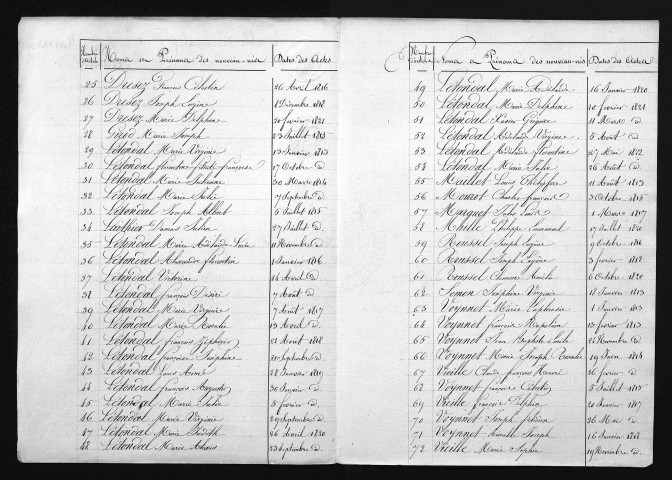 Noms et Prénoms des nouveau-nés Dates des Actes
25 Drezez François Célestin 26 Août 1816
26 Drezez Joseph Eugène 1 Décembre 1818
27 Drezez Marie Delphine 20 février 1821
28 Girod Marie Joseph 23 Juillet 1813
29 Létondal Marie Virginie 13 Janvier 1813
30 Létondal florentine françoise 17 Octobre d.
31 Létondal Marie 30 Mars 1814
32 Létondal Marie Julie 7 Septembre d.
33 Létondal Joseph Albert 5 Juillet 1815
34 Lauthier Damas 27 Juillet d.
35 Létondal Marie Adélaïde 11 Novembre d.
36 Létondal Alexandre florentin 1 Janvier 1816
37 Létondal Victorine 14 Août d.
38 Létondal françois Désiré 7 Août d.
39 Létondal Marie Virginie 7 Août 1817
40 Létondal Marie Rosalie 13 Avril d.
41 Létondal françois 22 Août 1818
42 Létondal françoise Joséphine 21 Septembre d.
43 Létondal Louis Aimé 28 Janvier 1819
44 Létondal françois Auguste 30 Janvier d.
45 Létondal Marie Julie 5 février d.
46 Létondal Marie Virginie 29 Septembre d.
47 Létondal Marie Judith 26 Avril 1820
48 Létondal Marie 23 Septembre d.
Noms et Prénoms des nouveau-nés Dates des Actes
49 Létondal Marie Adélaïde 16 Janvier 1820
50 Létondal Marie Delphine 10 février 1821
51 Létondal Xavier Grégoire 11 Mars d.
52 Létondal Adélaïde Virginie 5 Août d.
53 Létondal Adélaïde florentine 27 Mai 1822
54 Létondal Marie Julie 26 Août d.
55 Maillet Louis 11 Août 1813
56 Mourot Charles françois 3 Octobre 1815
57 Marguet Jules 1 Mars 1817
58 Mhelle Philippe Emmanuel 17 Juillet 1820
59 Roussel Joseph Eugène 9 Octobre 1816
60 Roussel Joseph Eugène 3 février 1818
61 Roussel 6 Octobre 1820
62 Simon Joséphine Virginie 18 Janvier 1813
63 Voynnet Marie Euphrosine 1 Janvier 1813
64 Voynnet françois Napoléon 13 février 1813
65 Voynnet Jean Baptiste Emile 24 Novembre d.
66 Voynnet Marie Joseph 19 Juin 1814
67 Vieille Claude françois Honoré 26 février d.
68 Voynnet françois Célestin 5 Juillet 1815
69 Vieille françois Delphin 20 Janvier 1817
70 Voynnet Joseph 26 Mai d.
71 Voynnet Joseph 16 Janvier 1818
72 Vieille Marie Sophie 19 Novembre d.